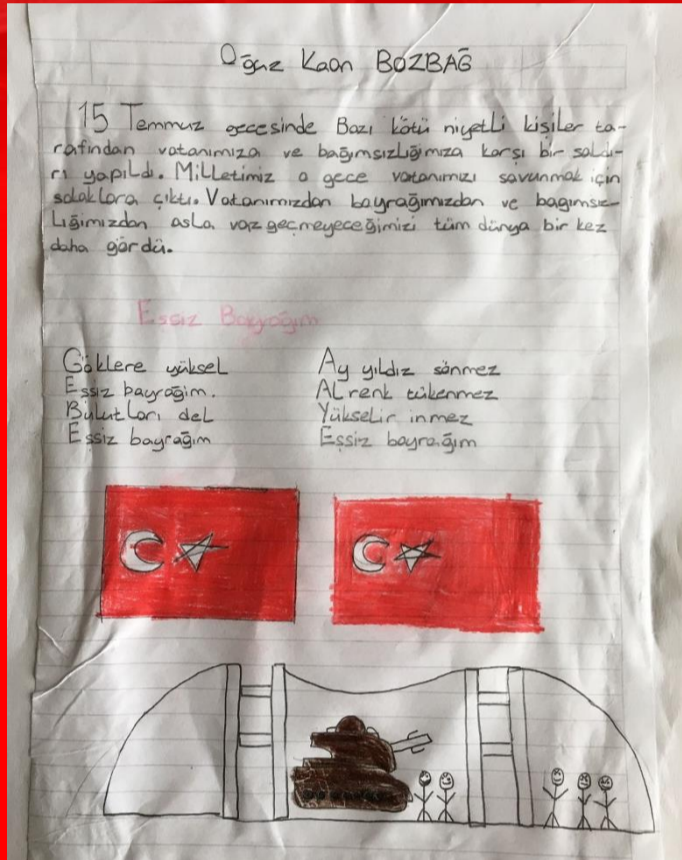 Oğuz Kaan BOZBAĞ
15 Temmuz gecesinde Bazı kötü niyetli kişiler ta-
rafından vatanımıza ve bağımsızlığımıza karşı bir saldı-
rı yapıldı. Milletimiz o gece vatanımızı savunmak için
sokaklara çıktı. Vatanımızdan bayrağımızdan ve bagımsız-
lığımızdan asla vaz geçmeyeceğimizi tüm dünya bir kez
daha gördü.
Eşsiz Bayrağım
Göklere yüksel
Eşsiz bayrağım.
Bulutları del
Eşsiz bayrağım
Ay yıldız sönmez
AL renk tükenmez
Yükselir inmez
Eşsiz bayrağım